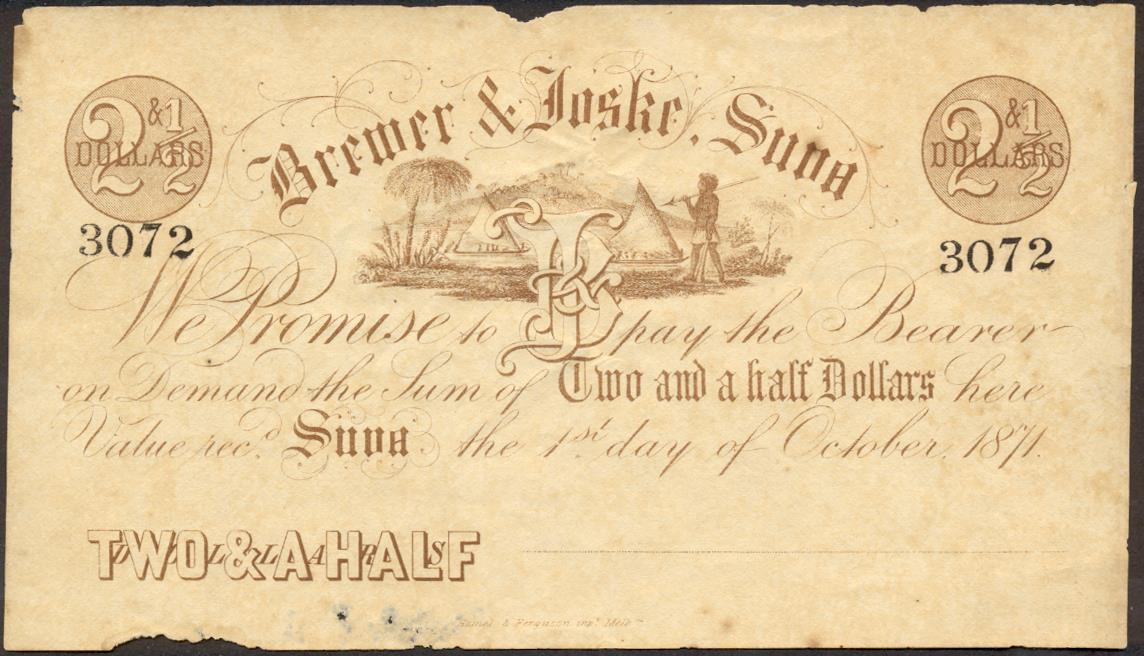 Brewer & Joske, Suva
2 & 1/2 DOLLARS
2 & 1/2 DOLLARS
3072
3072
We Promise to pay the Bearer
on Demand the Sum of Two and a half Dollars here
Value recd. Suva the 1st day of October, 1871.
TWO & A HALF
DOLLARS
& Ferguson impt. Melb